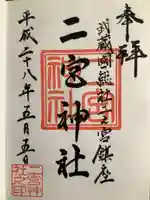 奉拝
武蔵國総社二之宮鎮座
二宮神社
平成二十八年五月五日